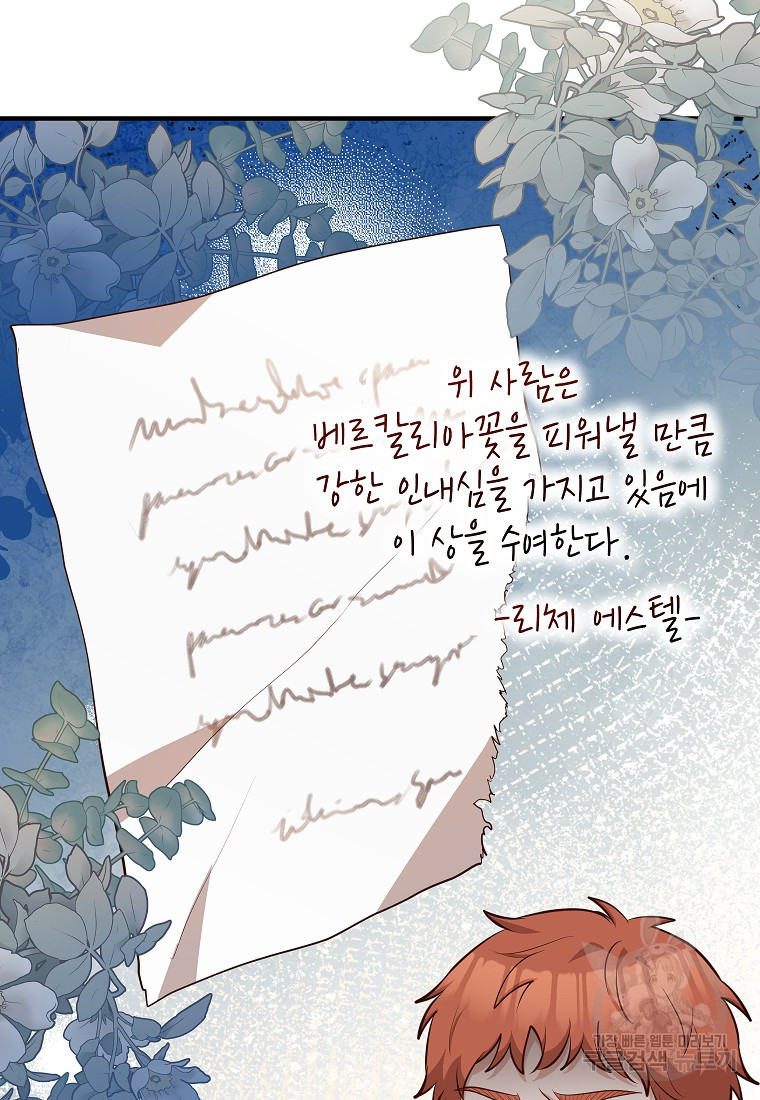 위 사람은
베르칼리아꽃을 피워낼 만큼
강한 인내심을 가지고 있음에
이 상을 수여한다.
-리체 에스텔-
가장 빠른 웹툰 미리보기
구글검색 뉴토끼